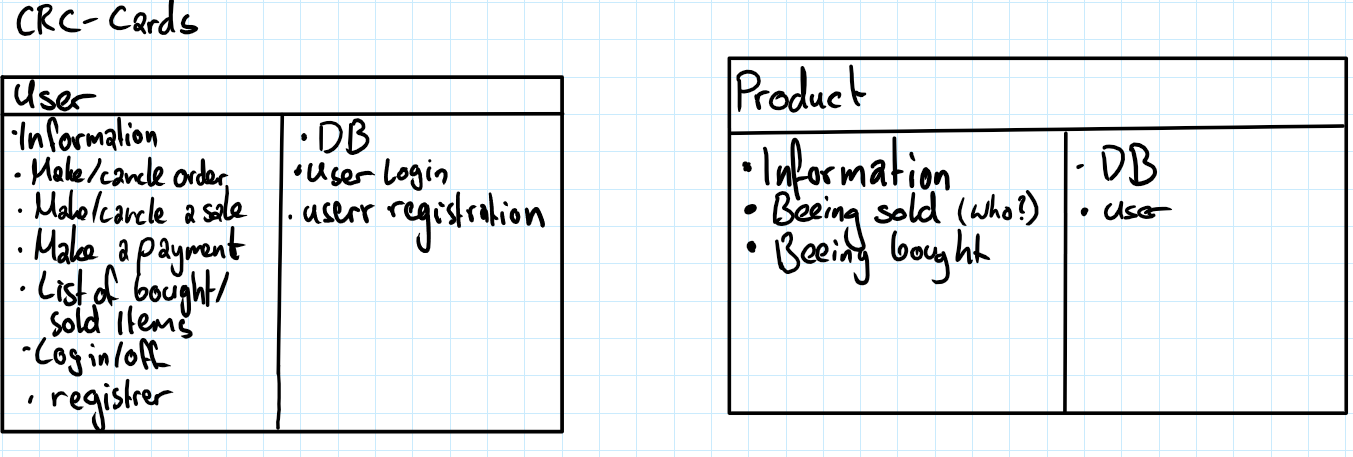 CRC-Cards
User
·Information
· Make/cancle order
· Make/cancle a sale
· Make a payment
· List of bought/
sold Items
- Login/off
· registrer
· DB
· User Login
· userr registration
Product
• Information
• Beeing sold (who?)
• Beeing bought
· DB
· user